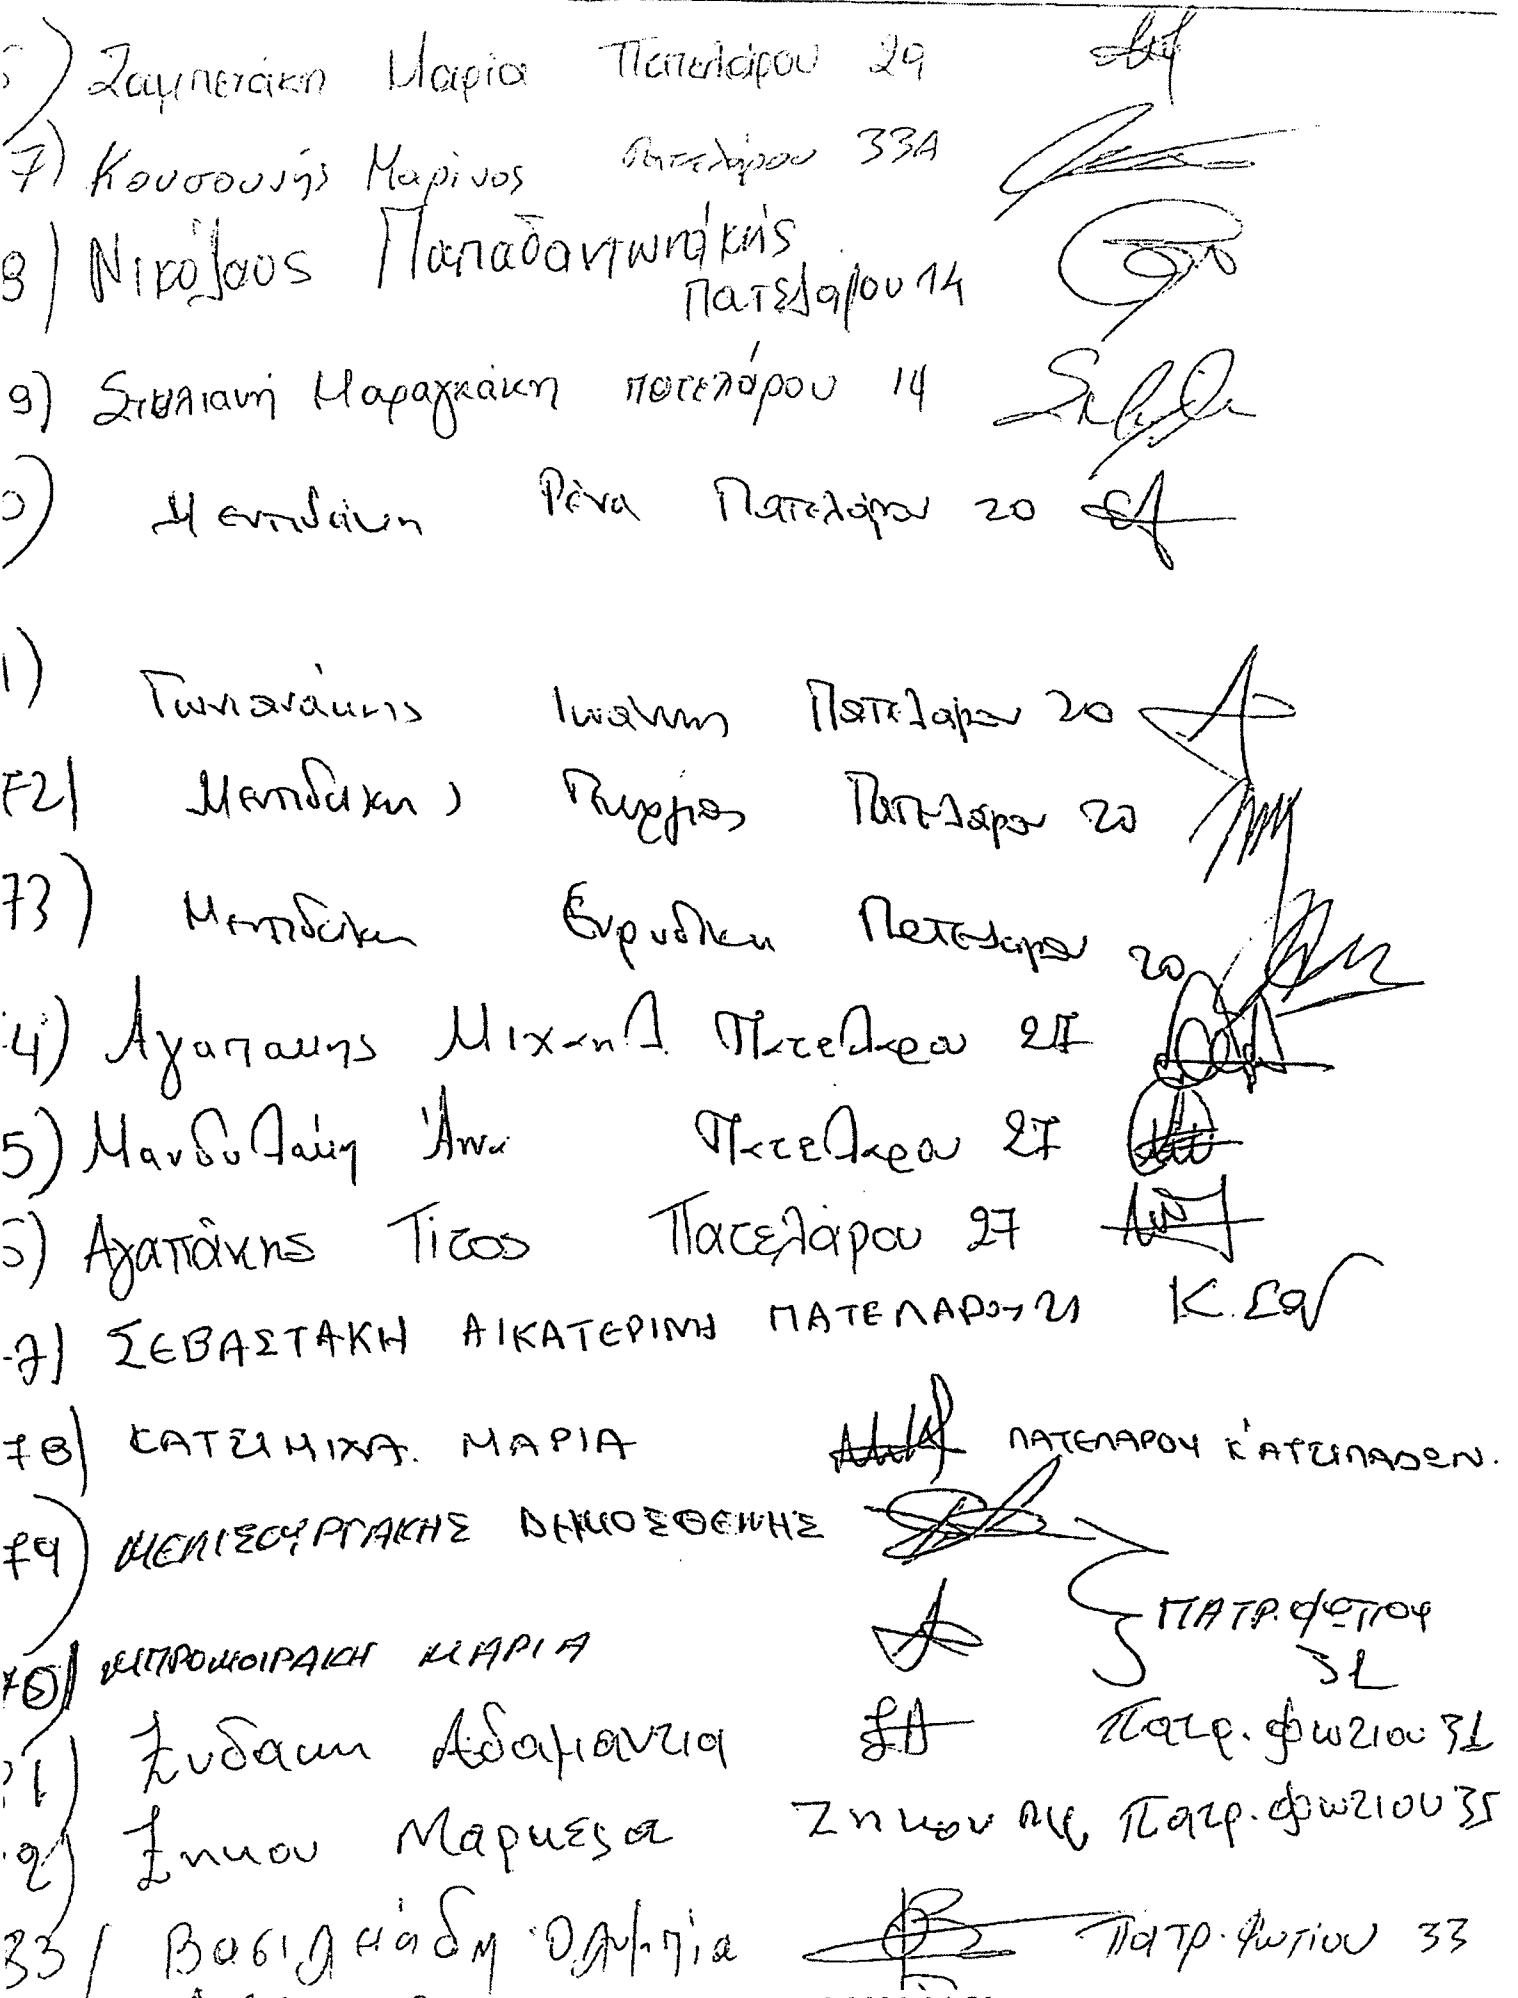 ) Ζαμπετάκη Μαρία Πατελάρου 29
7) Κουσουνής Μαρίνος Πατελάρου 33Α
8) Νικόλαος Παπαδαντωνάκης
Πατελάρου 14
9) Στυλιανή Μαραγκάκη πατελάρου 14
0) Μεντιδάκη Ρένα Πατελάρου 20
1) Γωνιανάκης Ιωάννης Πατελάρου 20
72) Μεντιδάκης Γεώργιος Πατελάρου 20
73) Μεντιδάκη Ευρυδίκη Πατελάρου 20
4) Αγαπακης Μιχαηλ Πατελαρου 27
5) Μανδυλάκη Άννα Πατελαρου 27
6) Αγαπάκης Τίτος Πατελάρου 27
7) ΣΕΒΑΣΤΑΚΗ ΑΙΚΑΤΕΡΙΝΗ ΠΑΤΕΛΑΡΟΥ 21 Κ. Σεβ
78) ΚΑΤΣΙΜΙΧΑ. ΜΑΡΙΑ ΠΑΤΕΛΑΡΟΥ & ΑΤΣΙΠΑΔΩΝ.
79) ΜΕΛΙΣΟΥΡΓΑΚΗΣ ΔΗΜΟΣΘΕΝΗΣ
ΜΠΡΟΜΟΙΡΑΚΗ ΜΑΡΙΑ ΠΑΤΡ. ΦΩΤΙΟΥ
31
1) Ξυδακη Αδαμαντια ΞΑ Πατρ. Φωτιου 31
2) Ζηκου Μαρκεζα Ζηκου Πατρ. Φωτιου 35
33) Βασιλειάδη Ολυμπία Πατρ. Φωτίου 33